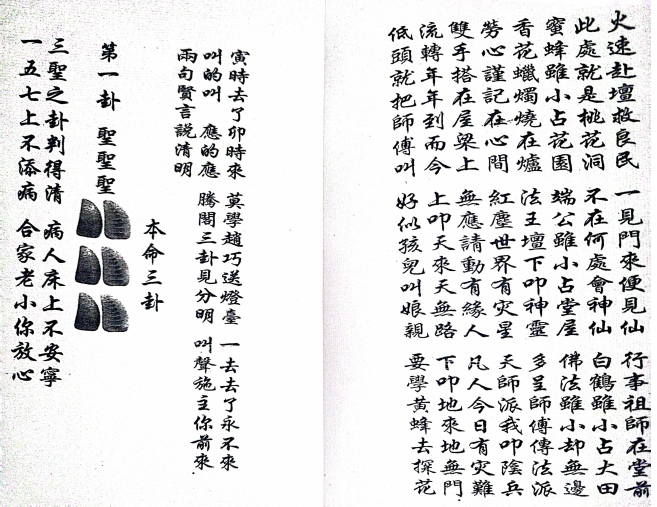 火速赴壇救良民 一見門來便見仙 行事祖師在堂前
此處就是桃花洞 不在何處會神仙 白鶴雖小占大田
蜜蜂雖小占花園 端公雖小占堂屋 佛法雖小却無邊
香花蠟燭燒在爐 法王壇下叩神靈 多呈師傅傳法派
勞心謹記在心間 紅塵世界有灾星 天師派我叩陰兵
雙手搭在屋梁上 無應請動有緣人 凡人今日有灾難
流轉年年到而今 上叩天來天無路 下叩地來地無門
低頭就把師傅叫 好似孩兒叫娘親 要學黃蜂去探花
寅時去了卯時來 莫學趙巧送燈臺 一去去了永不來
叫的叫 應的應 勝三卦見分明 叫聲施主你前來
兩句賢言說清明
本命三卦
第一卦 聖聖聖
三聖之卦判得清 病人床上不安寧
一五七上不添病 合家老小你放心